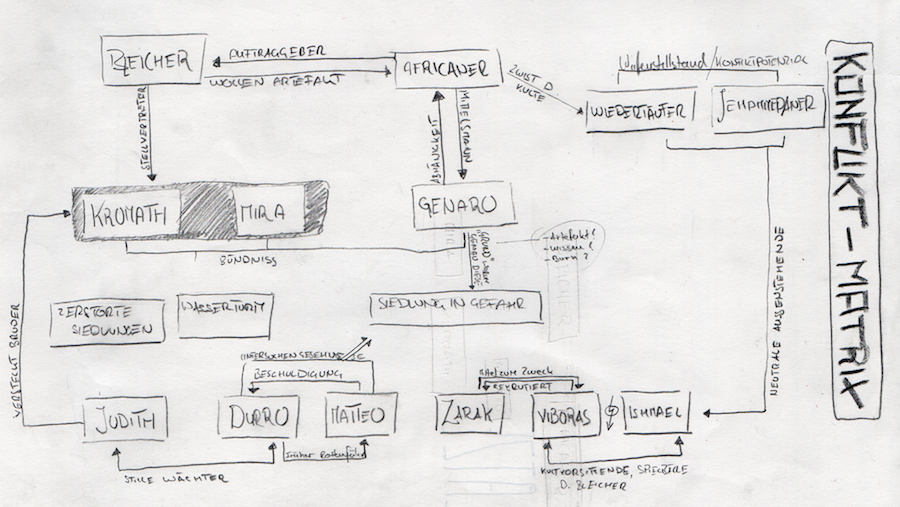 KONFLIKT-MATRIX
BLEICHER
AUFTRAGGEBER
WOLLEN ARTEFAKT
AFRICANER
ZWIST D.
KULTE
Waffenstillstand/KONFLIKTPOTENZIAL
WIEDERTÄUFER
JEHAMMEDANER
STELLVERTRETER
ABHÄNIGKEIT
MITTELSMANN
KROMATH
MIRA
GENARO
BÜNDNISS
"GRUND" warum
GENAU DIESE
- Artefakt?
- wissen?
- Burn?
NEUTRALE AUßENSTEHENDE
ZERSTÖRTE
SIEDLUNGEN
WASSERTURM
SIEDLUNG IN GEFAHR
VERSTECKT BRUDER
BESCHULDIGUNG
Mittel zum Zweck
REKRUTIERT
JUDITH
DURRO
MATTEO
ZARAK
VIBORAS
ISHMAEL
früher Rottenführer
STILLE WÄCHTER
KULTVORSITZENDE,
D. BLEICHER